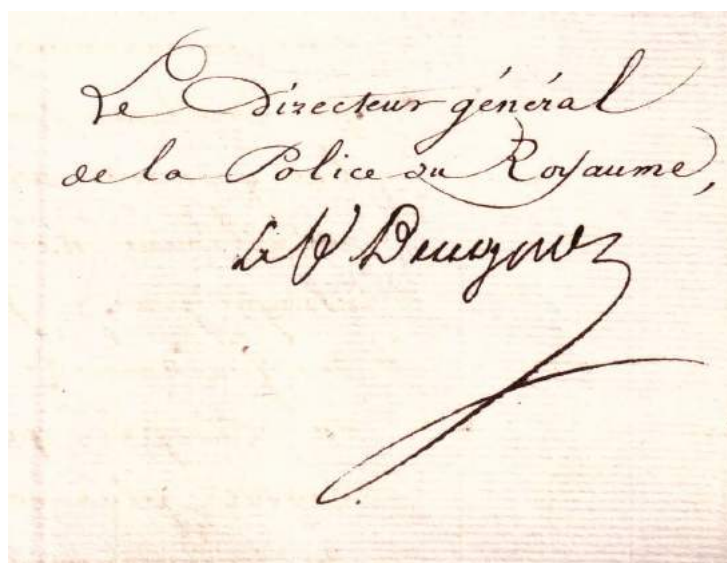 Le Directeur général
de la Police du Royaume,
Le Cte Beugnot